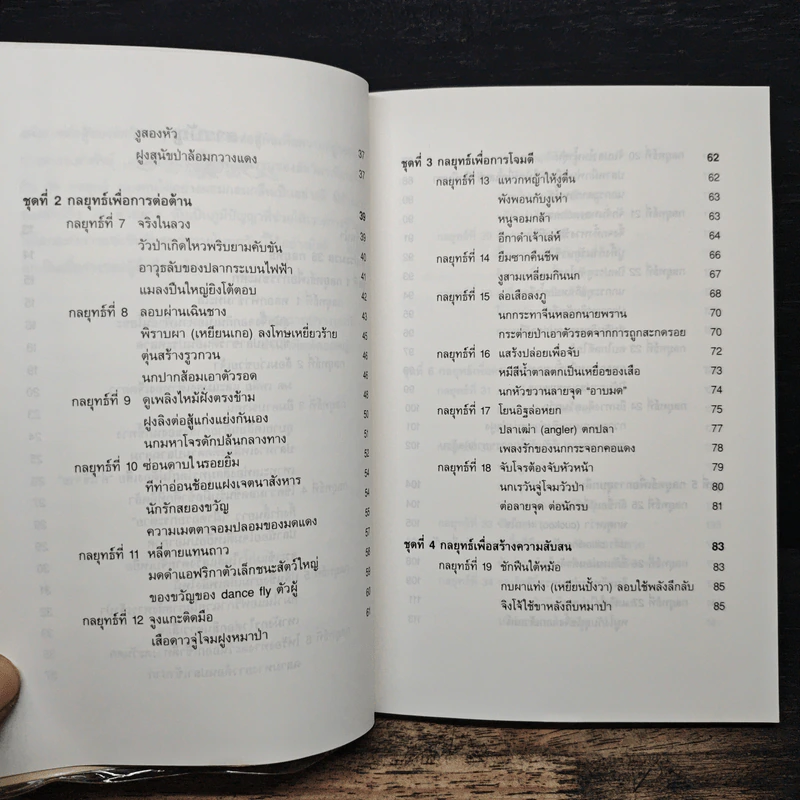 งูสองหัว 37
ฝูงสุนัขป่าล้อมกวางแดง 37
ชุดที่ 2 กลยุทธ์เพื่อการต่อต้าน 39
กลยุทธ์ที่ 7 จริงในลวง 39
วัวป่าเกิดไหวพริบยามคับขัน 40
อาวุธลับของปลากระเบนไฟฟ้า 41
แมลงปืนใหญ่ยิงโต้ตอบ 42
กลยุทธ์ที่ 8 ลอบผ่านเฉินชาง 43
พิราบผา (เหยียนเกอ) ลงโทษเหยี่ยวร้าย 45
ตุ่นสร้างรูวกวน 46
นกปากส้อมเอาตัวรอด 46
กลยุทธ์ที่ 9 ดูเพลิงไหม้ฝั่งตรงข้าม 48
ฝูงลิงต่อสู้แก่งแย่งกันเอง 50
นกมหาโจรดักปล้นกลางทาง 51
กลยุทธ์ที่ 10 ซ่อนดาบในรอยยิ้ม 52
ทีท่าอ่อนช้อยแฝงเจตนาสังหาร 54
นักรักสยองขวัญ 54
ความเมตตาจอมปลอมของมดแดง 57
กลยุทธ์ที่ 11 หลี่ตายแทนถาว 58
มดดำแอฟริกาตัวเล็กชนะสัตว์ใหญ่ 59
ของขวัญของ dance fly ตัวผู้ 60
กลยุทธ์ที่ 12 จูงแกะติดมือ 61
เสือดาวจู่โจมฝูงหมาป่า
ชุดที่ 3 กลยุทธ์เพื่อการโจมตี 62
กลยุทธ์ที่ 13 แหวกหญ้าให้งูตื่น 62
พังพอนกับงูเห่า 63
หนูจอมกล้า 63
อีกาตำเจ้าเล่ห์ 64
กลยุทธ์ที่ 14 ยืมซากคืนชีพ 66
งูสามเหลี่ยมกินนก 67
กลยุทธ์ที่ 15 ล่อเสือลงภู 68
นกกระทาจีนหลอกนายพราน 70
กระต่ายป่าเอาตัวรอดจากการถูกสะกดรอย 70
กลยุทธ์ที่ 16 แสร้งปล่อยเพื่อจับ 72
หมีสีน้ำตาลตกเป็นเหยื่อของเสือ 73
นกหัวขวานลายจุด "อาบมด" 74
กลยุทธ์ที่ 17 โยนอิฐล่อหยก 75
ปลาเฒ่า (angler) ตกปลา 77
เพลงรักของนกกระจอกคอแดง 78
กลยุทธ์ที่ 18 จับโจรต้องจับหัวหน้า 79
นกเรวันจู่โจมวัวป่า 80
ต่อลายจุด ต่อนักรบ 81
ชุดที่ 4 กลยุทธ์เพื่อสร้างความสับสน 83
กลยุทธ์ที่ 19 ชักฟืนใต้หม้อ 83
กบผาแท่ง (เหยียนปั้งวา) ลอบใช้พลังลึกลับ 85
จิงโจ้ใช้ขาหลังถีบหมาป่า 85